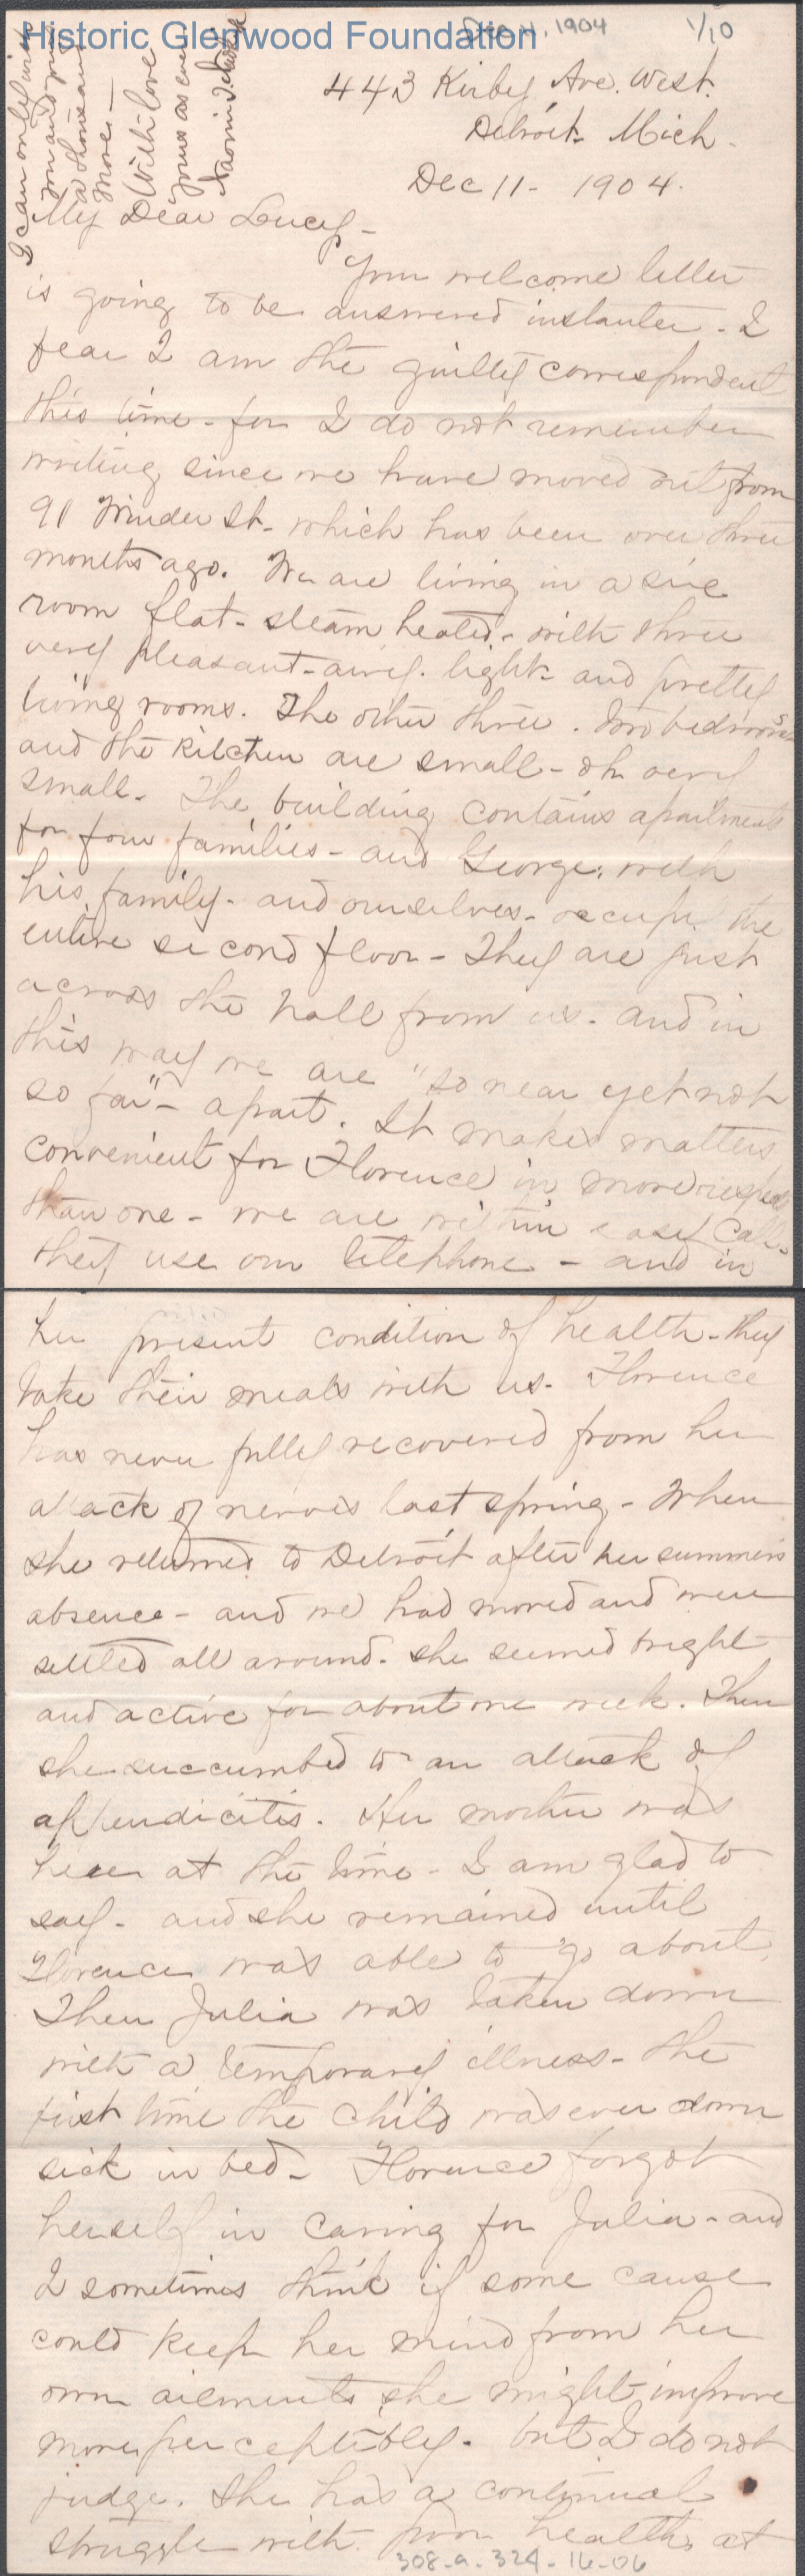 Historic Glenwood Foundation
Dec 11, 1904
1/10
I can only wish
you and yours
a thousand
more —
With love
yours as ever
Naomi
443 Kirby Ave. West.
Detroit Mich.
Dec 11 - 1904.
My Dear Lucy -
Your welcome letter
is going to be answered instanter - I
fear I am the guilty correspondent
this time - for I do not remember
writing since we have moved out from
91 Winder St - which has been over three
months ago. We are living in a six
room flat - steam heated - with three
very pleasant - airy - light and pretty
living rooms. The other three - two bedrooms
and the kitchen are small - oh very
small. The building contains apartments
for four families - and George, with
his family - and ourselves - occupy the
entire second floor - They are just
across the hall from us - and in
this way we are "so near yet not
so far" - apart. It makes matters
convenient for Florence in more respects
than one - we are within easy call -
they use our telephone - and in
her present condition of health - they
take their meals with us. Florence
has never fully recovered from her
attack of nerves last spring - When
she returned to Detroit after her summers
absence - and we had moved and were
settled all around - she seemed bright
and active for about one week. Then
she succumbed to an attack of
appendicitis. Her mother was
here at the time - I am glad to
say - and she remained until
Florence was able to go about.
Then Julia was taken down
with a temporary illness - the
first time the child was ever down
sick in bed - Florence forgot
herself in caring for Julia - and
I sometimes think if some cause
could keep her mind from her
own ailments she might improve
more perceptibly - but I do not
judge. She has a continual
struggle with poor health at
308-a-324-16-06